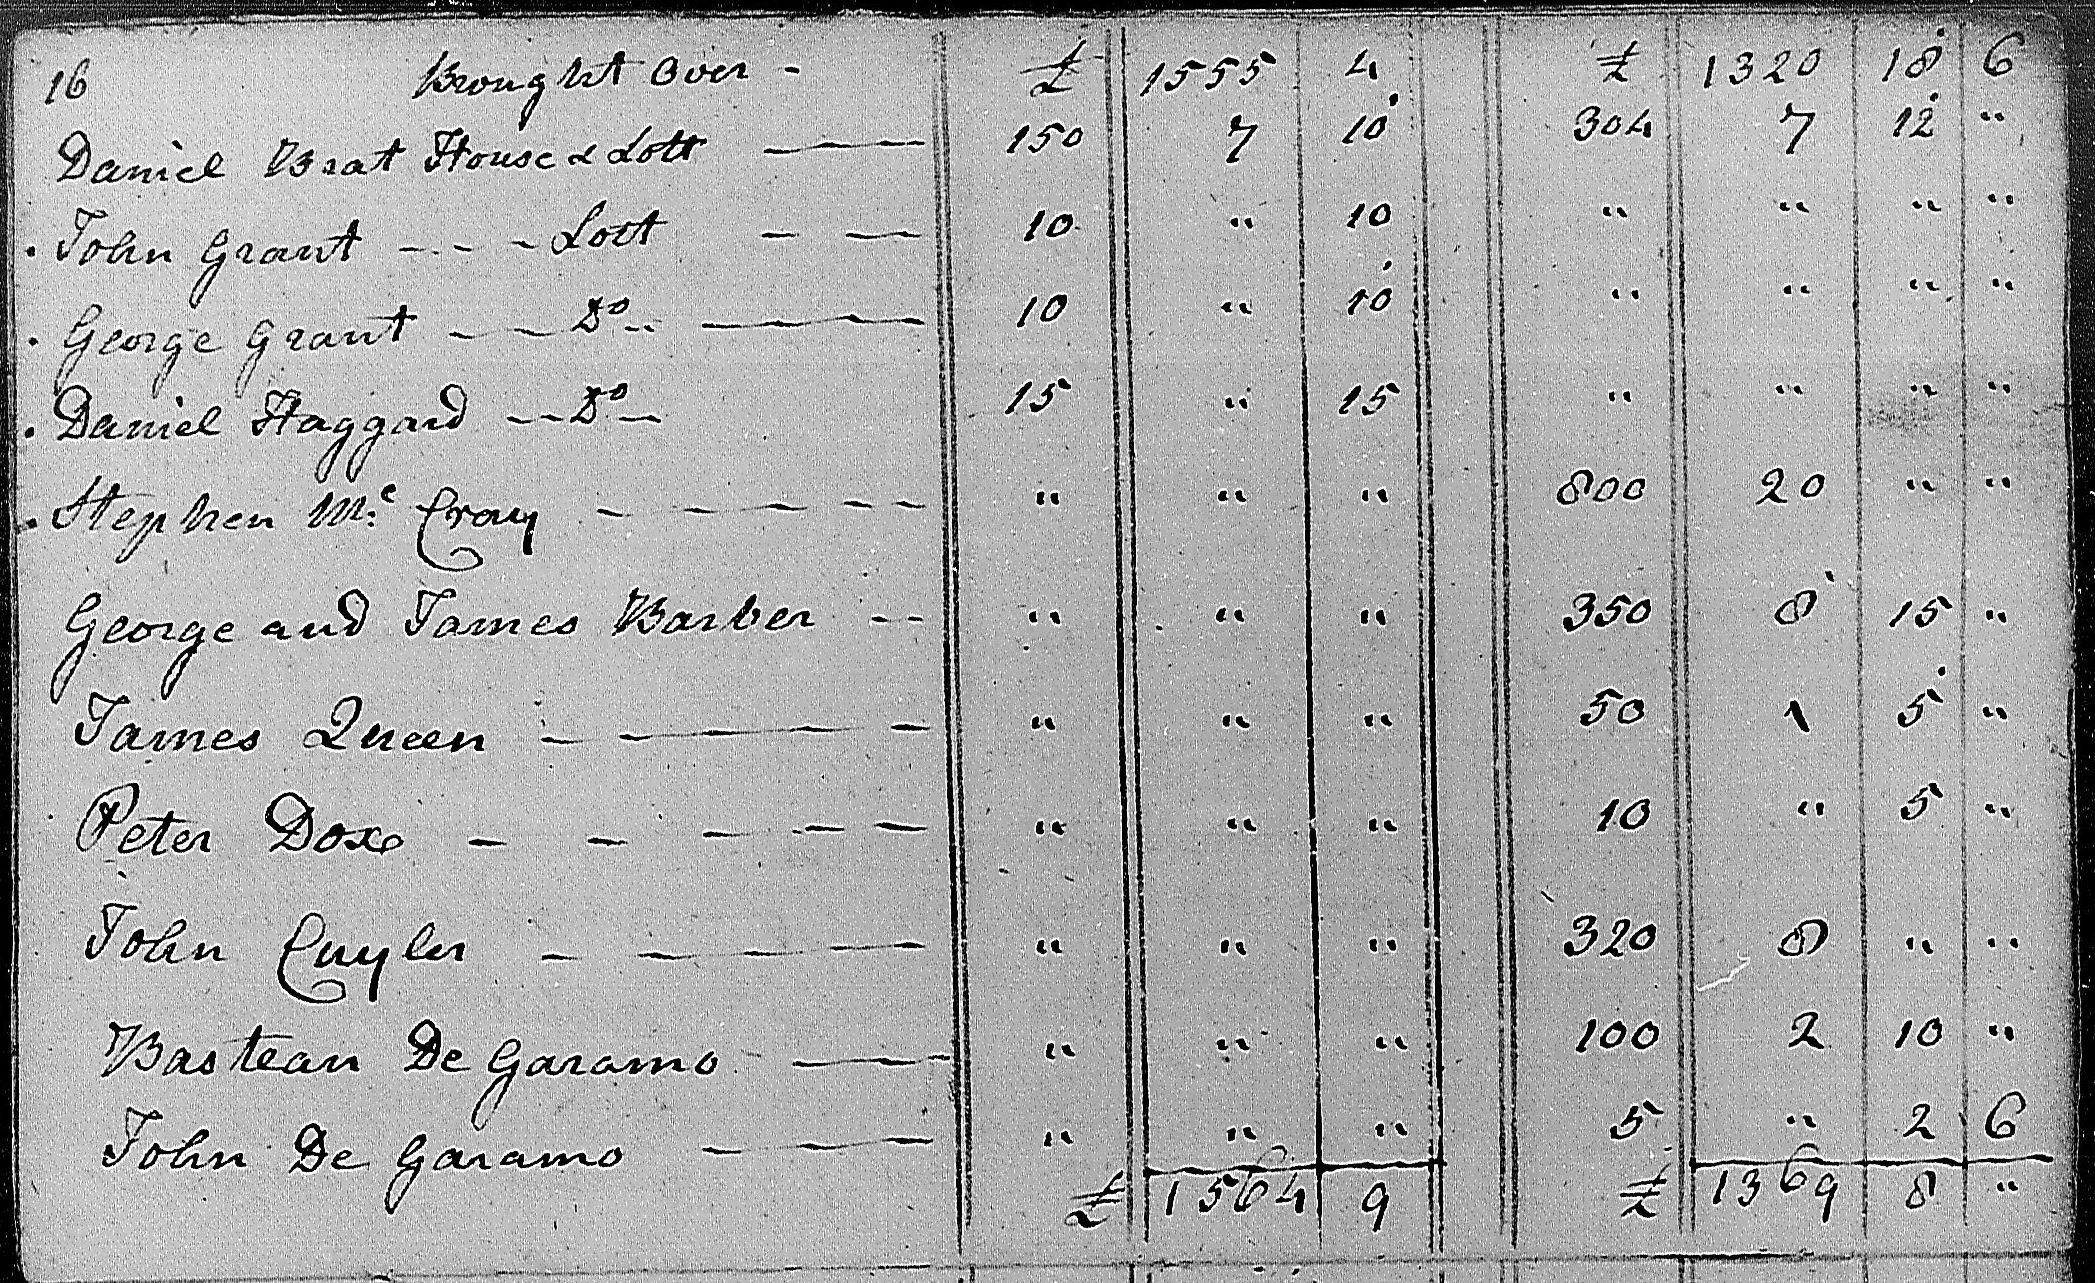 16 Brought Over - £ 1555 4 £ 1320 18 6
Daniel Brat House & Lott — 150 7 10 304 7 12 "
. John Grant - - - Lott — — 10 " 10 " " " "
. George Grant — — Do — 10 " 10 " " " "
. Daniel Haggard — Do — 15 " 15 " " " "
. Stephen Mc Cray — — — — " " " 800 20 " "
George and James Barber - - " " " 350 8 15 "
James Queen — — — — — " " " 50 1 5 "
Peter Doxe — — — — — " " " 10 " 5 "
John Cuyler — — — — " " " 320 8 " "
Bastean De Garamo — — " " " 100 2 10 "
John De Garamo — — — " " " 5 " 2 6
£ 1564 9 £ 1369 8 "